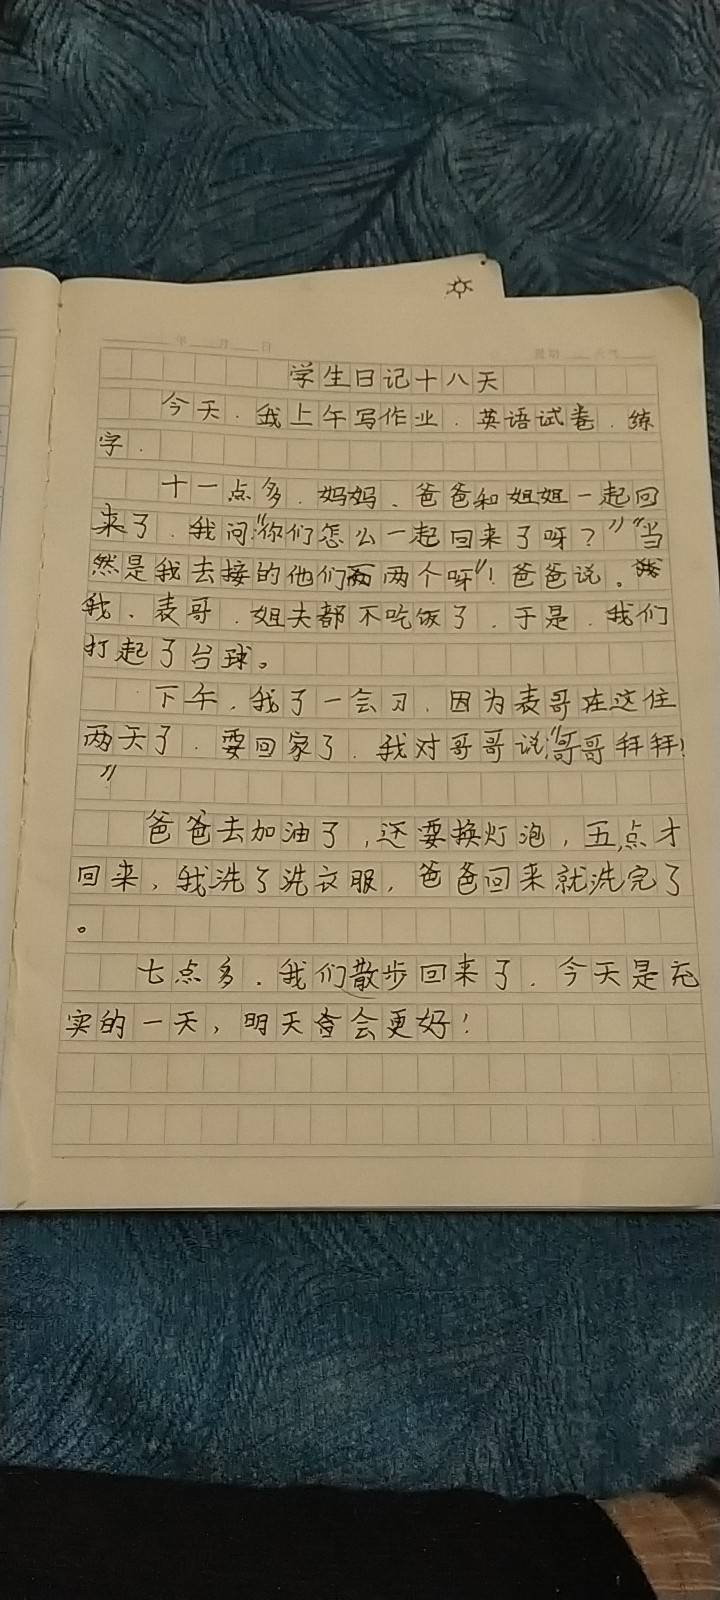 年 月 日 星期 天气
学生日记十八天
今天.我上午写作业.英语试卷.练
字.
十一点多.妈妈、爸爸和姐姐一起回
来了.我问:"你们怎么一起回来了呀？""当
然是我去接的他们两个呀"!爸爸说。
我、表哥.姐夫都不吃饭了.于是.我们
打起了台球。
下午.我了一会习.因为表哥在这住
两天了.要回家了.我对哥哥说:"哥哥拜拜!
"
爸爸去加油了,还要换灯泡,五点才
回来,我洗了洗衣服,爸爸回来就洗完了
。
七点多.我们散步回来了.今天是充
实的一天,明天会更好!